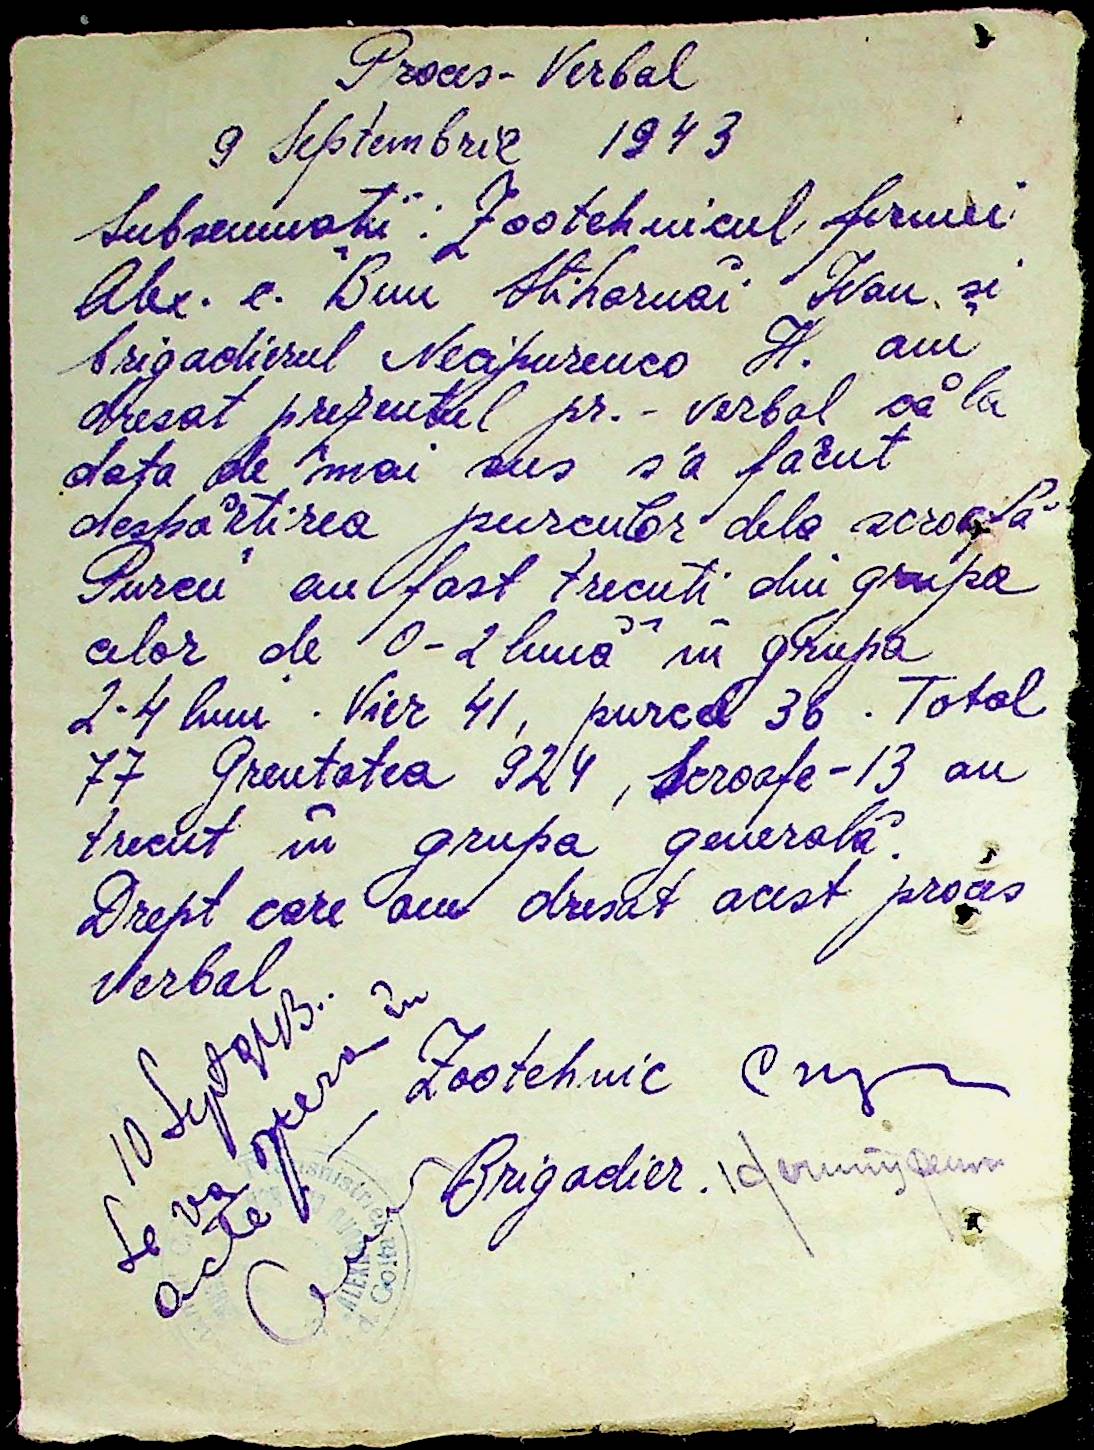 Proces-Verbal
9 Septembrie 1943
Subsemnatii: Zootehnicul fermei
Alex. c. Bun Stiharnâi Ivan si
brigadierul Necipurenco H. am
dresat prezentul pr.-verbal că la
data de mai sus s'a făcut
despărtirea purceilor dela scroafă
Purceii au fost trecuti din grupa
celor de 0-2 lună în grupa
2-4 luni. Vier 41, purcel 36. Total
77 Greutatea 924, Scroafe-13 au
trecut în grupa generală.
Drept care am dresat acest proces
verbal
10 Sept 943.
Se va opera în
acte
Zootehnic
Brigadier.
Transnistriei